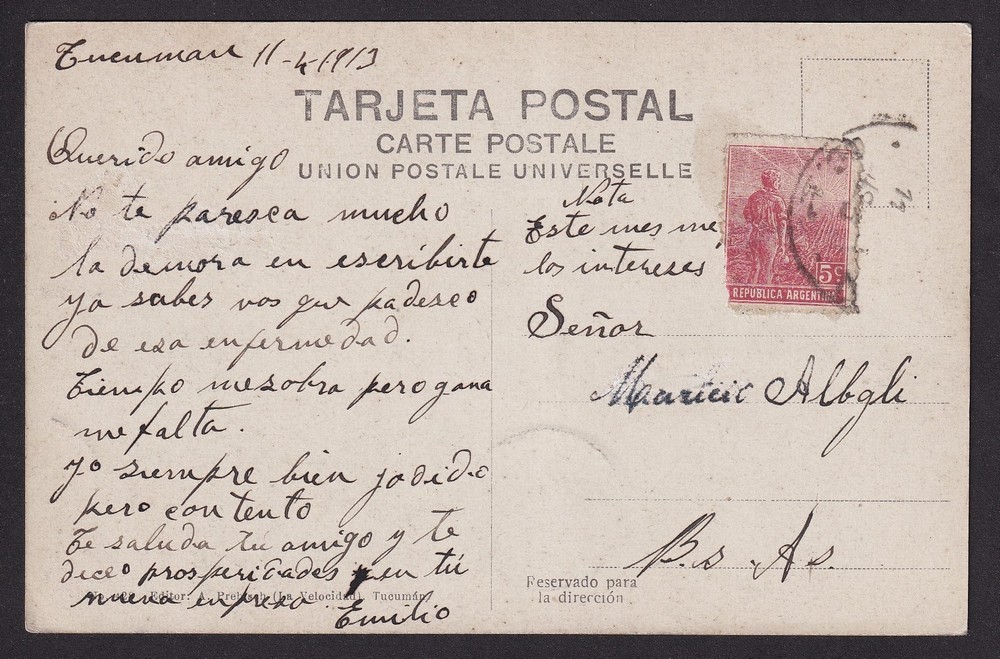 Tucuman 11-4-1913
TARJETA POSTAL
CARTE POSTALE
UNION POSTALE UNIVERSELLE
Querido amigo
No te paresca mucho
la demora en escribirte
ya sabes vos que padesco
de esa enfermedad.
Tiempo me sobra pero gana
me falta.
Yo siempre bien jodido
pero contento
Te saluda tú amigo y te
diceo prosperidades en tú
nueva enpresa.
Emilio
Editor: A. Prebisch (La Velocidad), Tucumán
Nota
Este mes me
los intereses
5c
REPUBLICA ARGENTINA
Señor
Albgli
Bs As.
Reservado para
la dirección